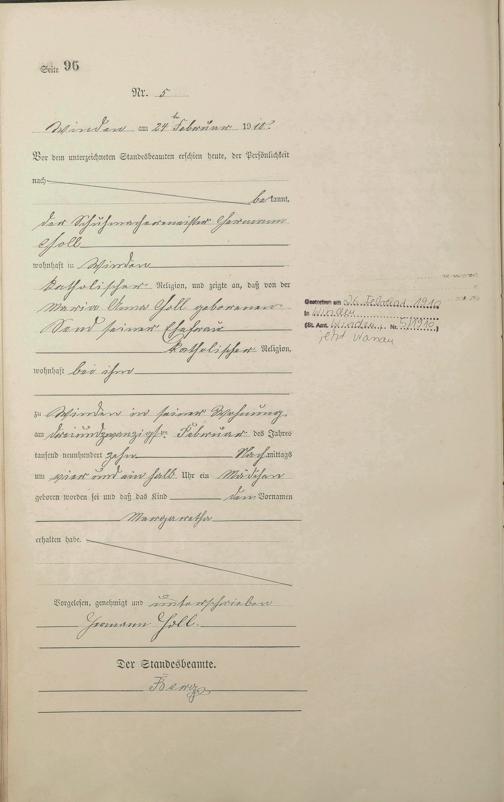 Seite 96
Nr. 5
Winden am 24ten Februar 1910.
Vor dem unterzeichneten Standesbeamten erschien heute, der Persönlichkeit
nach
bekannt,
der Schuhmachermeister Hermann
Holl
wohnhaft in Winden
katholischer Religion, und zeigte an, daß von der
Maria Anna Holl geborenen
seiner Ehefrau
katholischer Religion,
wohnhaft bei ihm
zu Winden in seiner Wohnung
am dreiundzwanzigsten Februar des Jahres
tausend neunhundert zehn Nachmittags
um vier und ein halb Uhr ein Mädchen
geboren worden sei und daß das Kind den Vornamen
Margaretha
erhalten habe.
Vorgelesen, genehmigt und unterschrieben
Hermann Holl.
Der Standesbeamte.
Gestorben am 26. Februar 1910
in Winden
(St. Amt. Winden, Nr. 5/1910.)